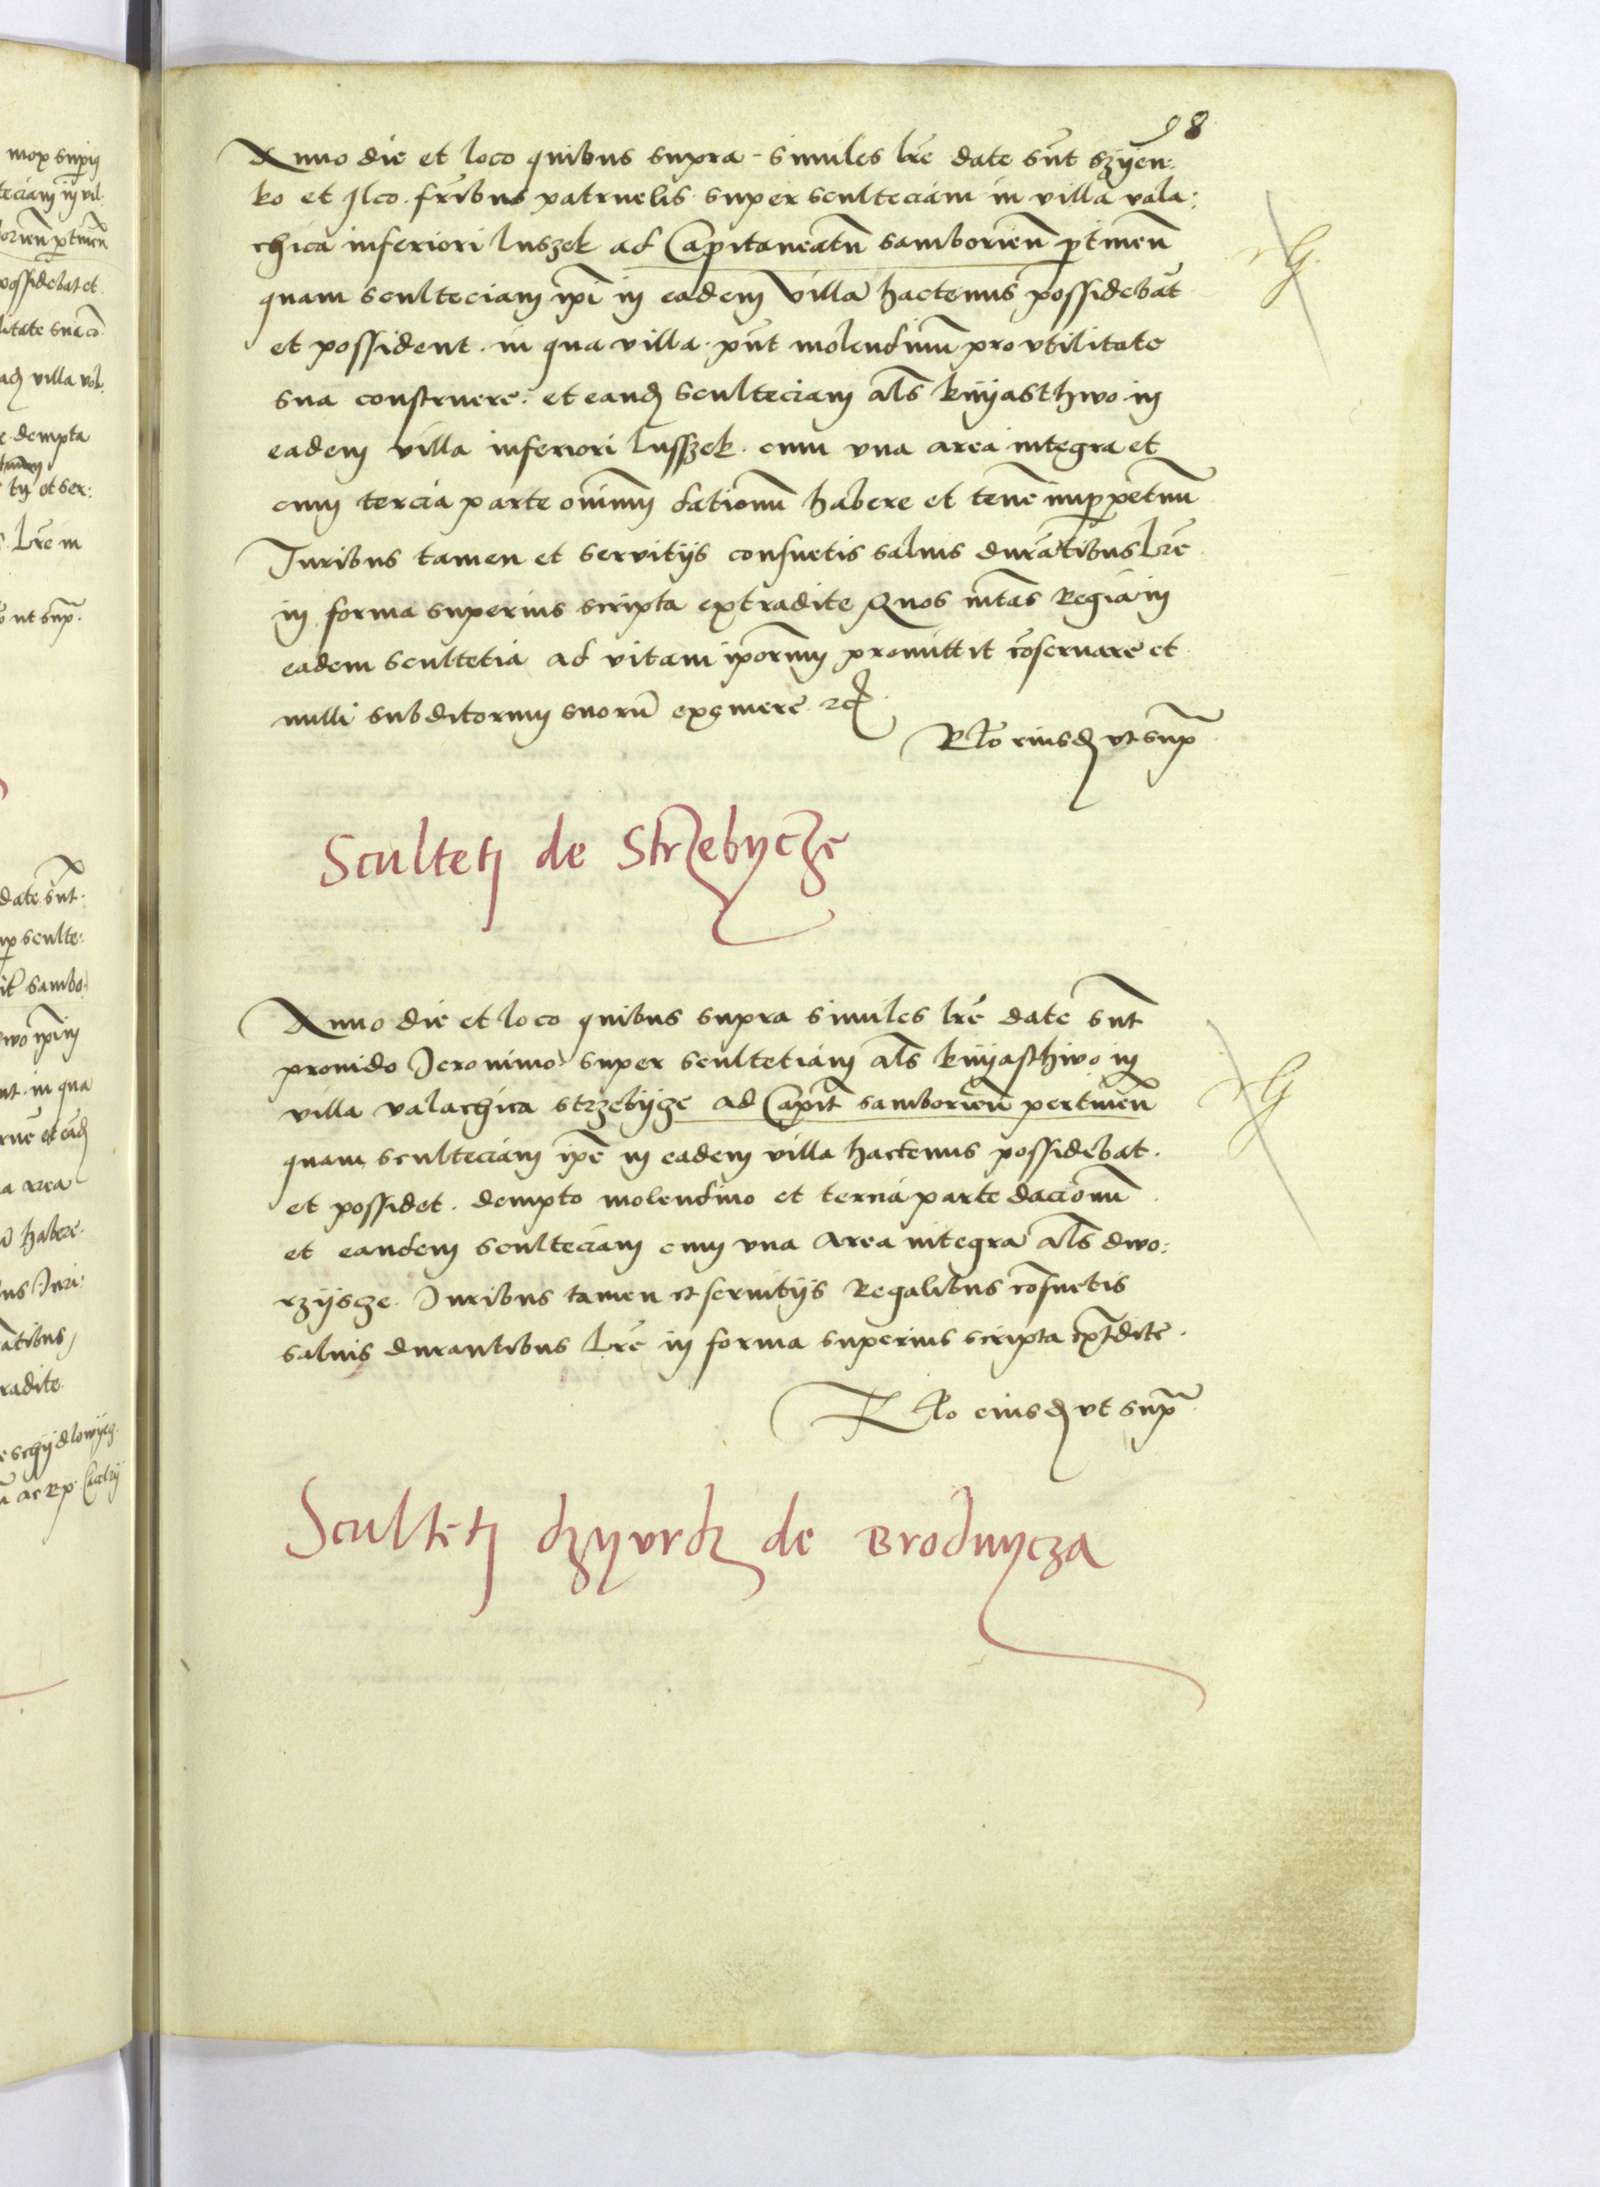 98
Anno die et loco quibus supra - similes lrē date sūt szyen:
ko et Ilco fribus patruelis super sculteciam in villa vala:
chica inferiori luszek ad Capitaneatū samborieñ ptineñ
quam sculteciam ipi in eadem villa hactenus possidebāt
et possident. in qua villa. pnt molendinū pro vtilitate
sua construere. et eandē scultecian als knyasthwo in
eadem villa inferiori lusszek. cum vna area integra et
cum tercia parte omnium dationū habere et tenē inperpetuū
Juribus tamen et servitijs consuetis salvis durātibus lrē
in forma superius scripta extradite Quos mtas Regia in
eadem scultetia ad vitam ipōrum promittit cōservare et
nulli subditorum suorū eximere etc
Rlo eiusdē vt sup
Sculteti de Strzebycze
Anno die et loco quibus supra similes lrē date sūt
provido Jeronimo super scultetiam als knyasthwo in
villa valachica strzebycze ad Capit samborieñ pertineñ
quam scultetiam ipē in eadem villa hactenus possidebat.
et possidet. dempto molendino et tercia parte dacionū
et eandem scultetiam cum vna area integra als dwo:
rzyscze. Juribus tamen et servitijs Regalibus cōsuetis
salvis durantibus lrē in forma superius scripta extdite.
Rlo eiusdē vt sup
Sculteti dzyurdz de Brodnycza